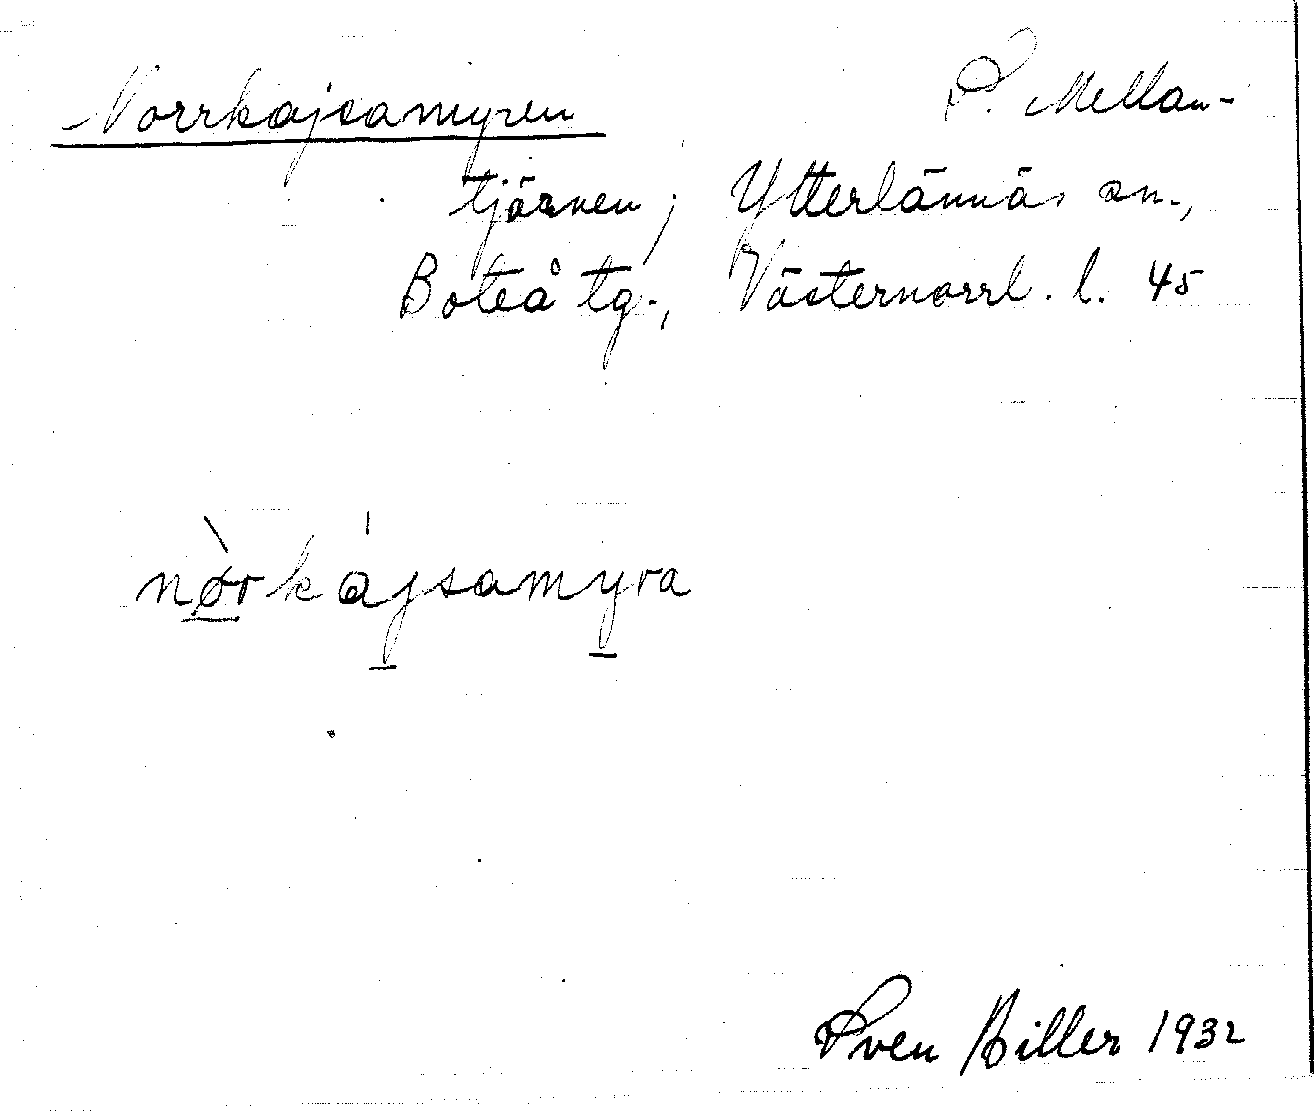 Norrkajsamyren S. Mellan-
tjärnen; Ytterlännäs sn.,
Boteå tg., Västernorrl. l. 45
nòrkájsamyra
Sven Hiller 1932